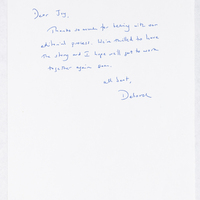 Dear Joy,
Thanks so much for bearing with our
editorial process. We're thrilled to have
the story and I hope we'll get to work
together again soon.
All best,
Deborah